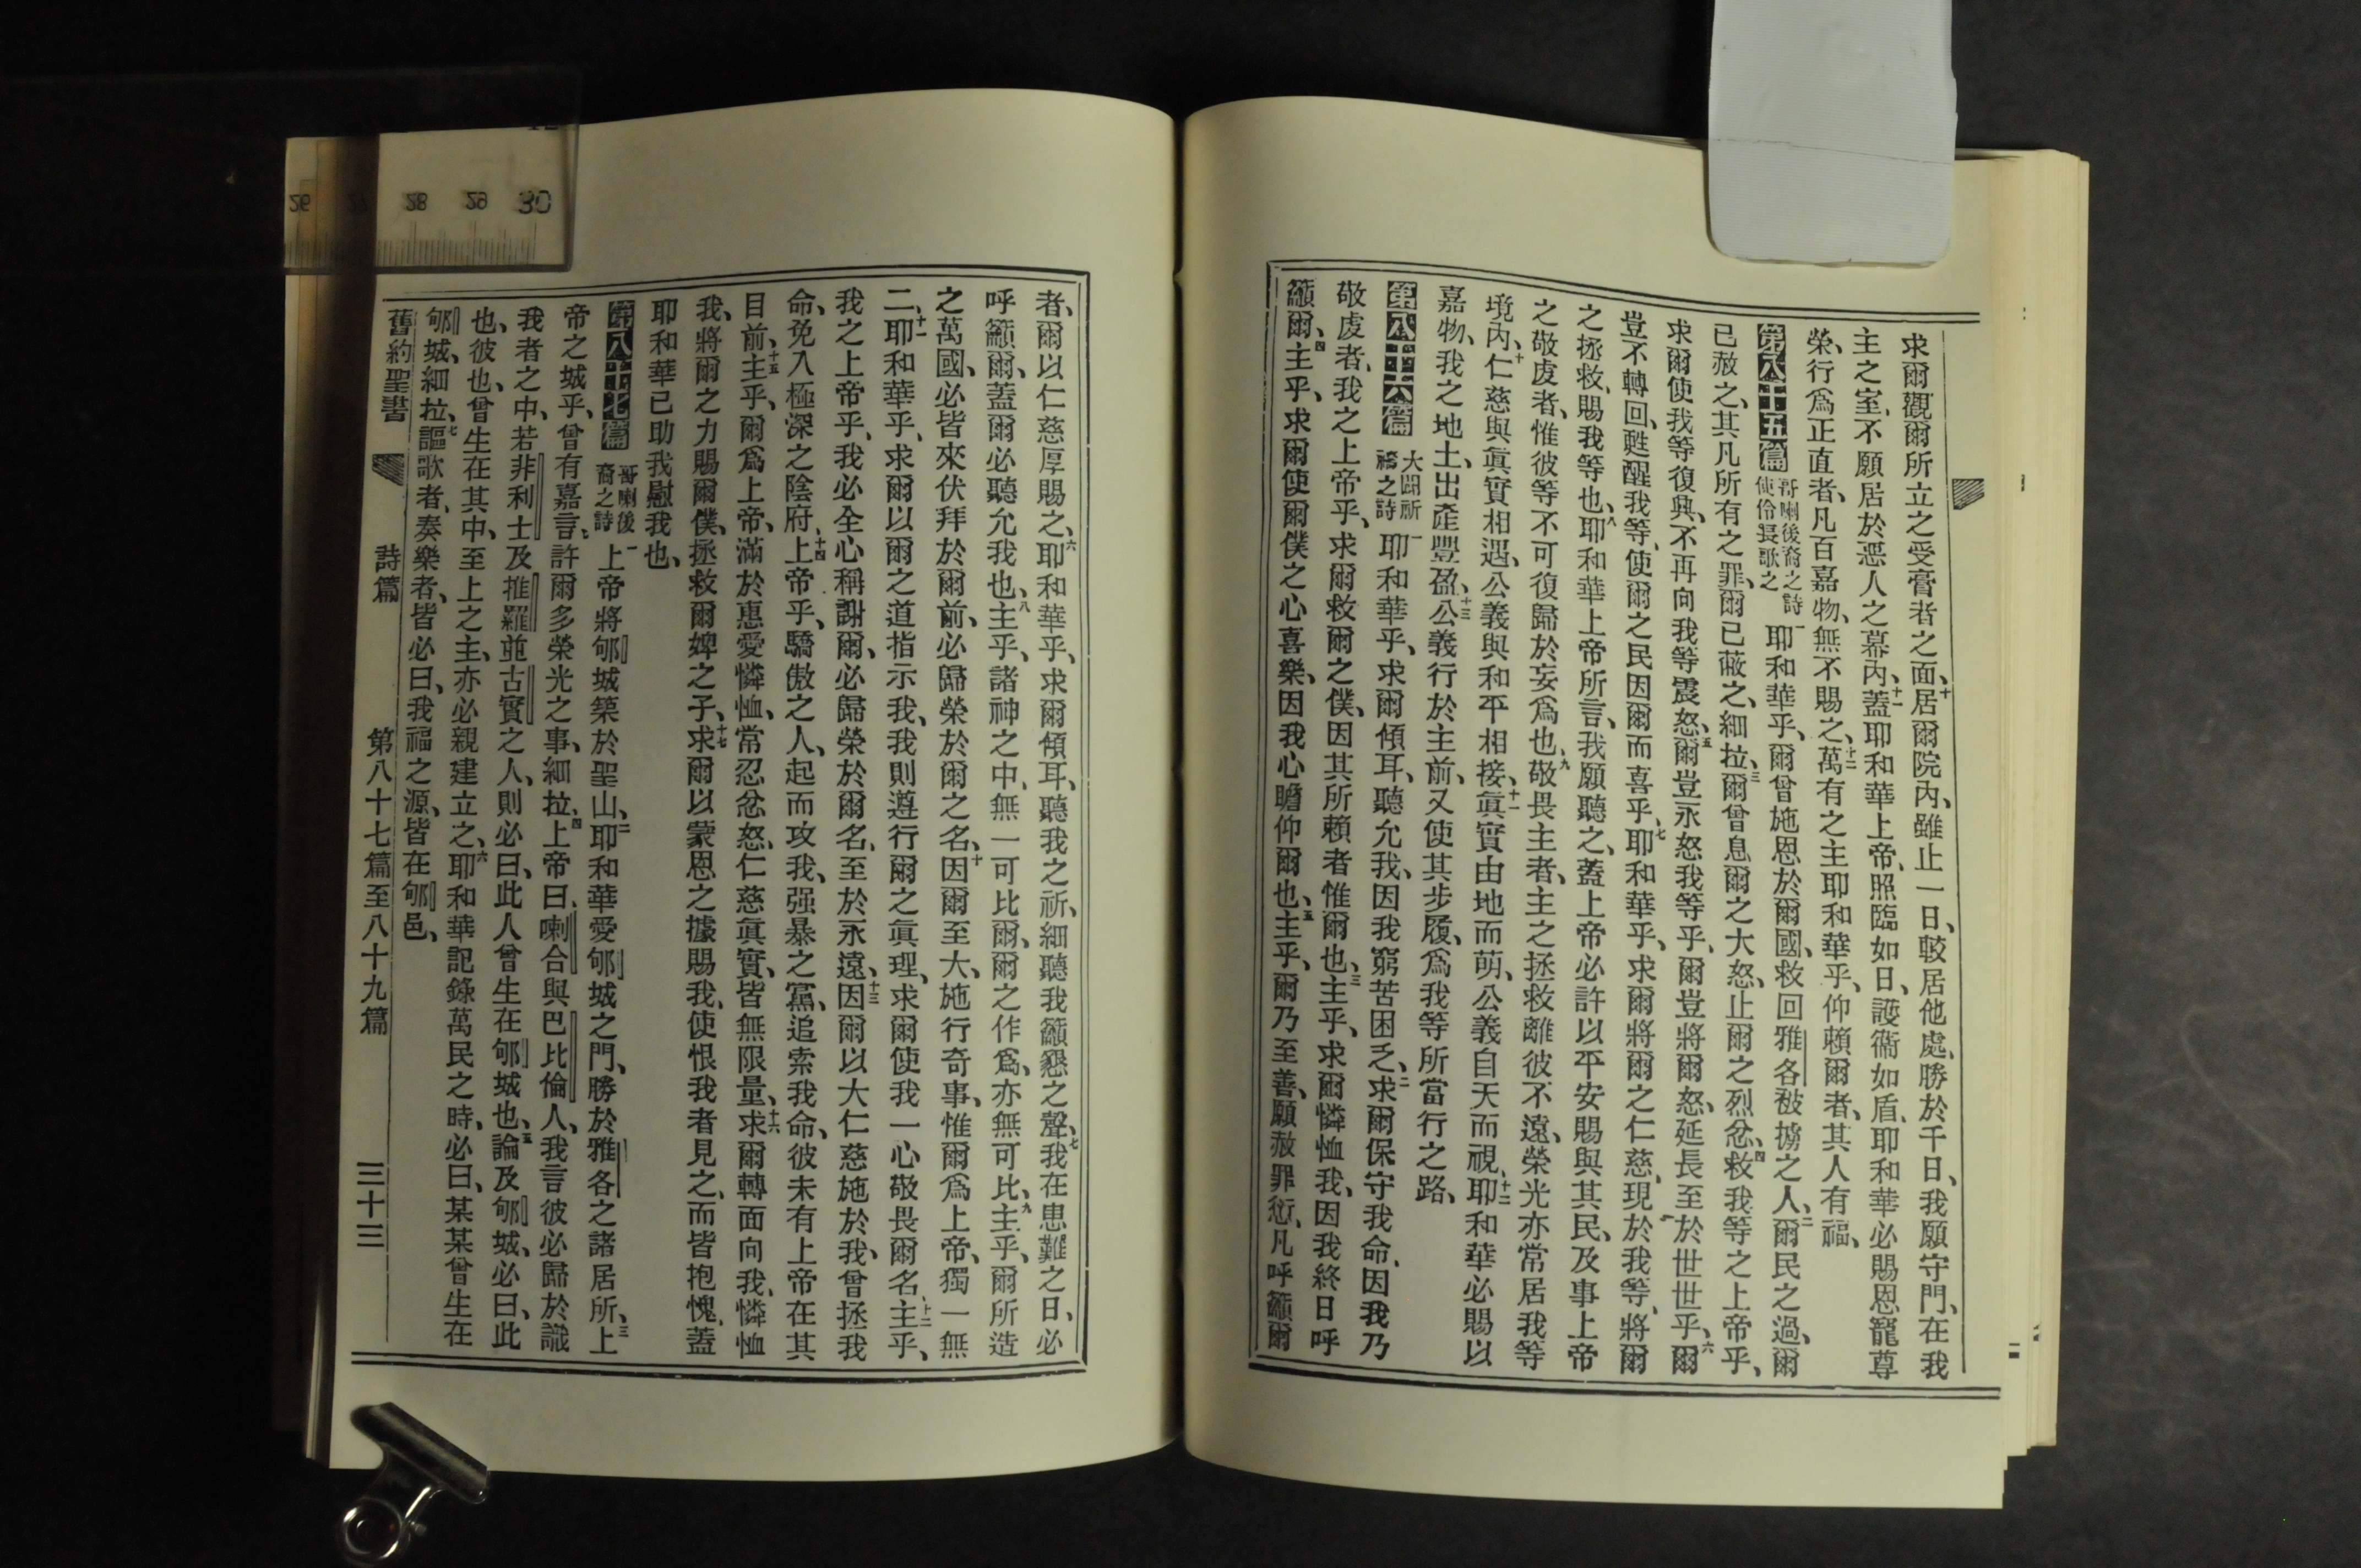 求爾觀爾所立之受膏者之面、十居爾院內、雖止一日、較居他處、勝於千日、我願守門、在我
主之室、不願居於惡人之幕內、十一蓋耶和華上帝、照臨如日、護衞如盾、耶和華必賜恩寵尊
榮、行爲正直者、凡百嘉物、無不賜之、十二萬有之主耶和華乎、仰賴爾者、其人有福、
第八十五篇 哥喇後裔之詩使伶長歌之 一耶和華乎、爾曾施恩於爾國、救回雅各被擄之人、二爾民之過、爾
已赦之、其凡所有之罪、爾已蔽之、細拉、三爾曾息爾之大怒、止爾之烈忿、四救我等之上帝乎、
求爾使我等復興、不再向我等震怒、五爾豈永怒我等乎、爾豈將爾怒、延長至於世世乎、六爾
豈不轉回、甦醒我等、使爾之民因爾而喜乎、七耶和華乎、求爾將爾之仁慈、現於我等、將爾
之拯救、賜我等也、八耶和華上帝所言、我願聽之、蓋上帝必許以平安賜與其民、及事上帝
之敬虔者、惟彼等不可復歸於妄爲也、九敬畏主者、主之拯救離彼不遠、榮光亦常居我等
境內、十仁慈與眞實相遇、公義與和平相接、十一眞實由地而萌、公義自天而視、十二耶和華必賜以
嘉物、我之地土、出產豐盈、十三公義行於主前、又使其步履、爲我等所當行之路、
第八十六篇 大闢祈禱之詩 一耶和華乎、求爾傾耳、聽允我、因我窮苦困乏、二求爾保守我命、因我乃
敬虔者、我之上帝乎、求爾救爾之僕、因其所賴者惟爾也、三主乎、求爾憐恤我、因我終日呼
籲爾、四主乎、求爾使爾僕之心喜樂、因我心瞻仰爾也、五主乎、爾乃至善、願赦罪愆、凡呼籲爾
者、爾以仁慈厚賜之、六耶和華乎、求爾傾耳、聽我之祈、細聽我籲懇之聲、七我在患難之日、必
呼籲爾、蓋爾必聽允我也、八主乎、諸神之中、無一可比爾、爾之作爲、亦無可比、九主乎、爾所造
之萬國、必皆來伏拜於爾前、必歸榮於爾之名、十因爾至大、施行奇事、惟爾爲上帝、獨一無
二、十一耶和華乎、求爾以爾之道指示我、我則遵行爾之眞理、求爾使我一心敬畏爾名、十二主乎、
我之上帝乎、我必全心稱謝爾、必歸榮於爾名、至於永遠、十三因爾以大仁慈施於我、曾拯我
命、免入極深之陰府、十四上帝乎、驕傲之人、起而攻我、强暴之黨、追索我命、彼未有上帝在其
目前、十五主乎、爾爲上帝、滿於惠愛憐恤、常忍忿怒、仁慈眞實、皆無限量、十六求爾轉面向我、憐恤
我、將爾之力賜爾僕、拯救爾婢之子、十七求爾以蒙恩之據賜我、使恨我者見之、而皆抱愧、蓋
耶和華已助我慰我也、
第八十七篇 哥喇後裔之詩 一上帝將郇城築於聖山、二耶和華愛郇城之門、勝於雅各之諸居所、三上
帝之城乎、曾有嘉言、許爾多榮光之事、細拉、四上帝曰、喇合與巴比倫人、我言彼必歸於識
我者之中、若非利士及推羅並古實之人、則必曰、此人曾生在郇城也、五論及郇城、必曰、此
也、彼也、曾生在其中、至上之主、亦必親建立之、六耶和華記錄萬民之時、必曰、某某曾生在
郇城、細拉、七謳歌者、奏樂者、皆必曰、我福之源、皆在郇邑、
舊約聖書 詩篇 第八十七篇至八十九篇 三十三
26 27 28 29 30